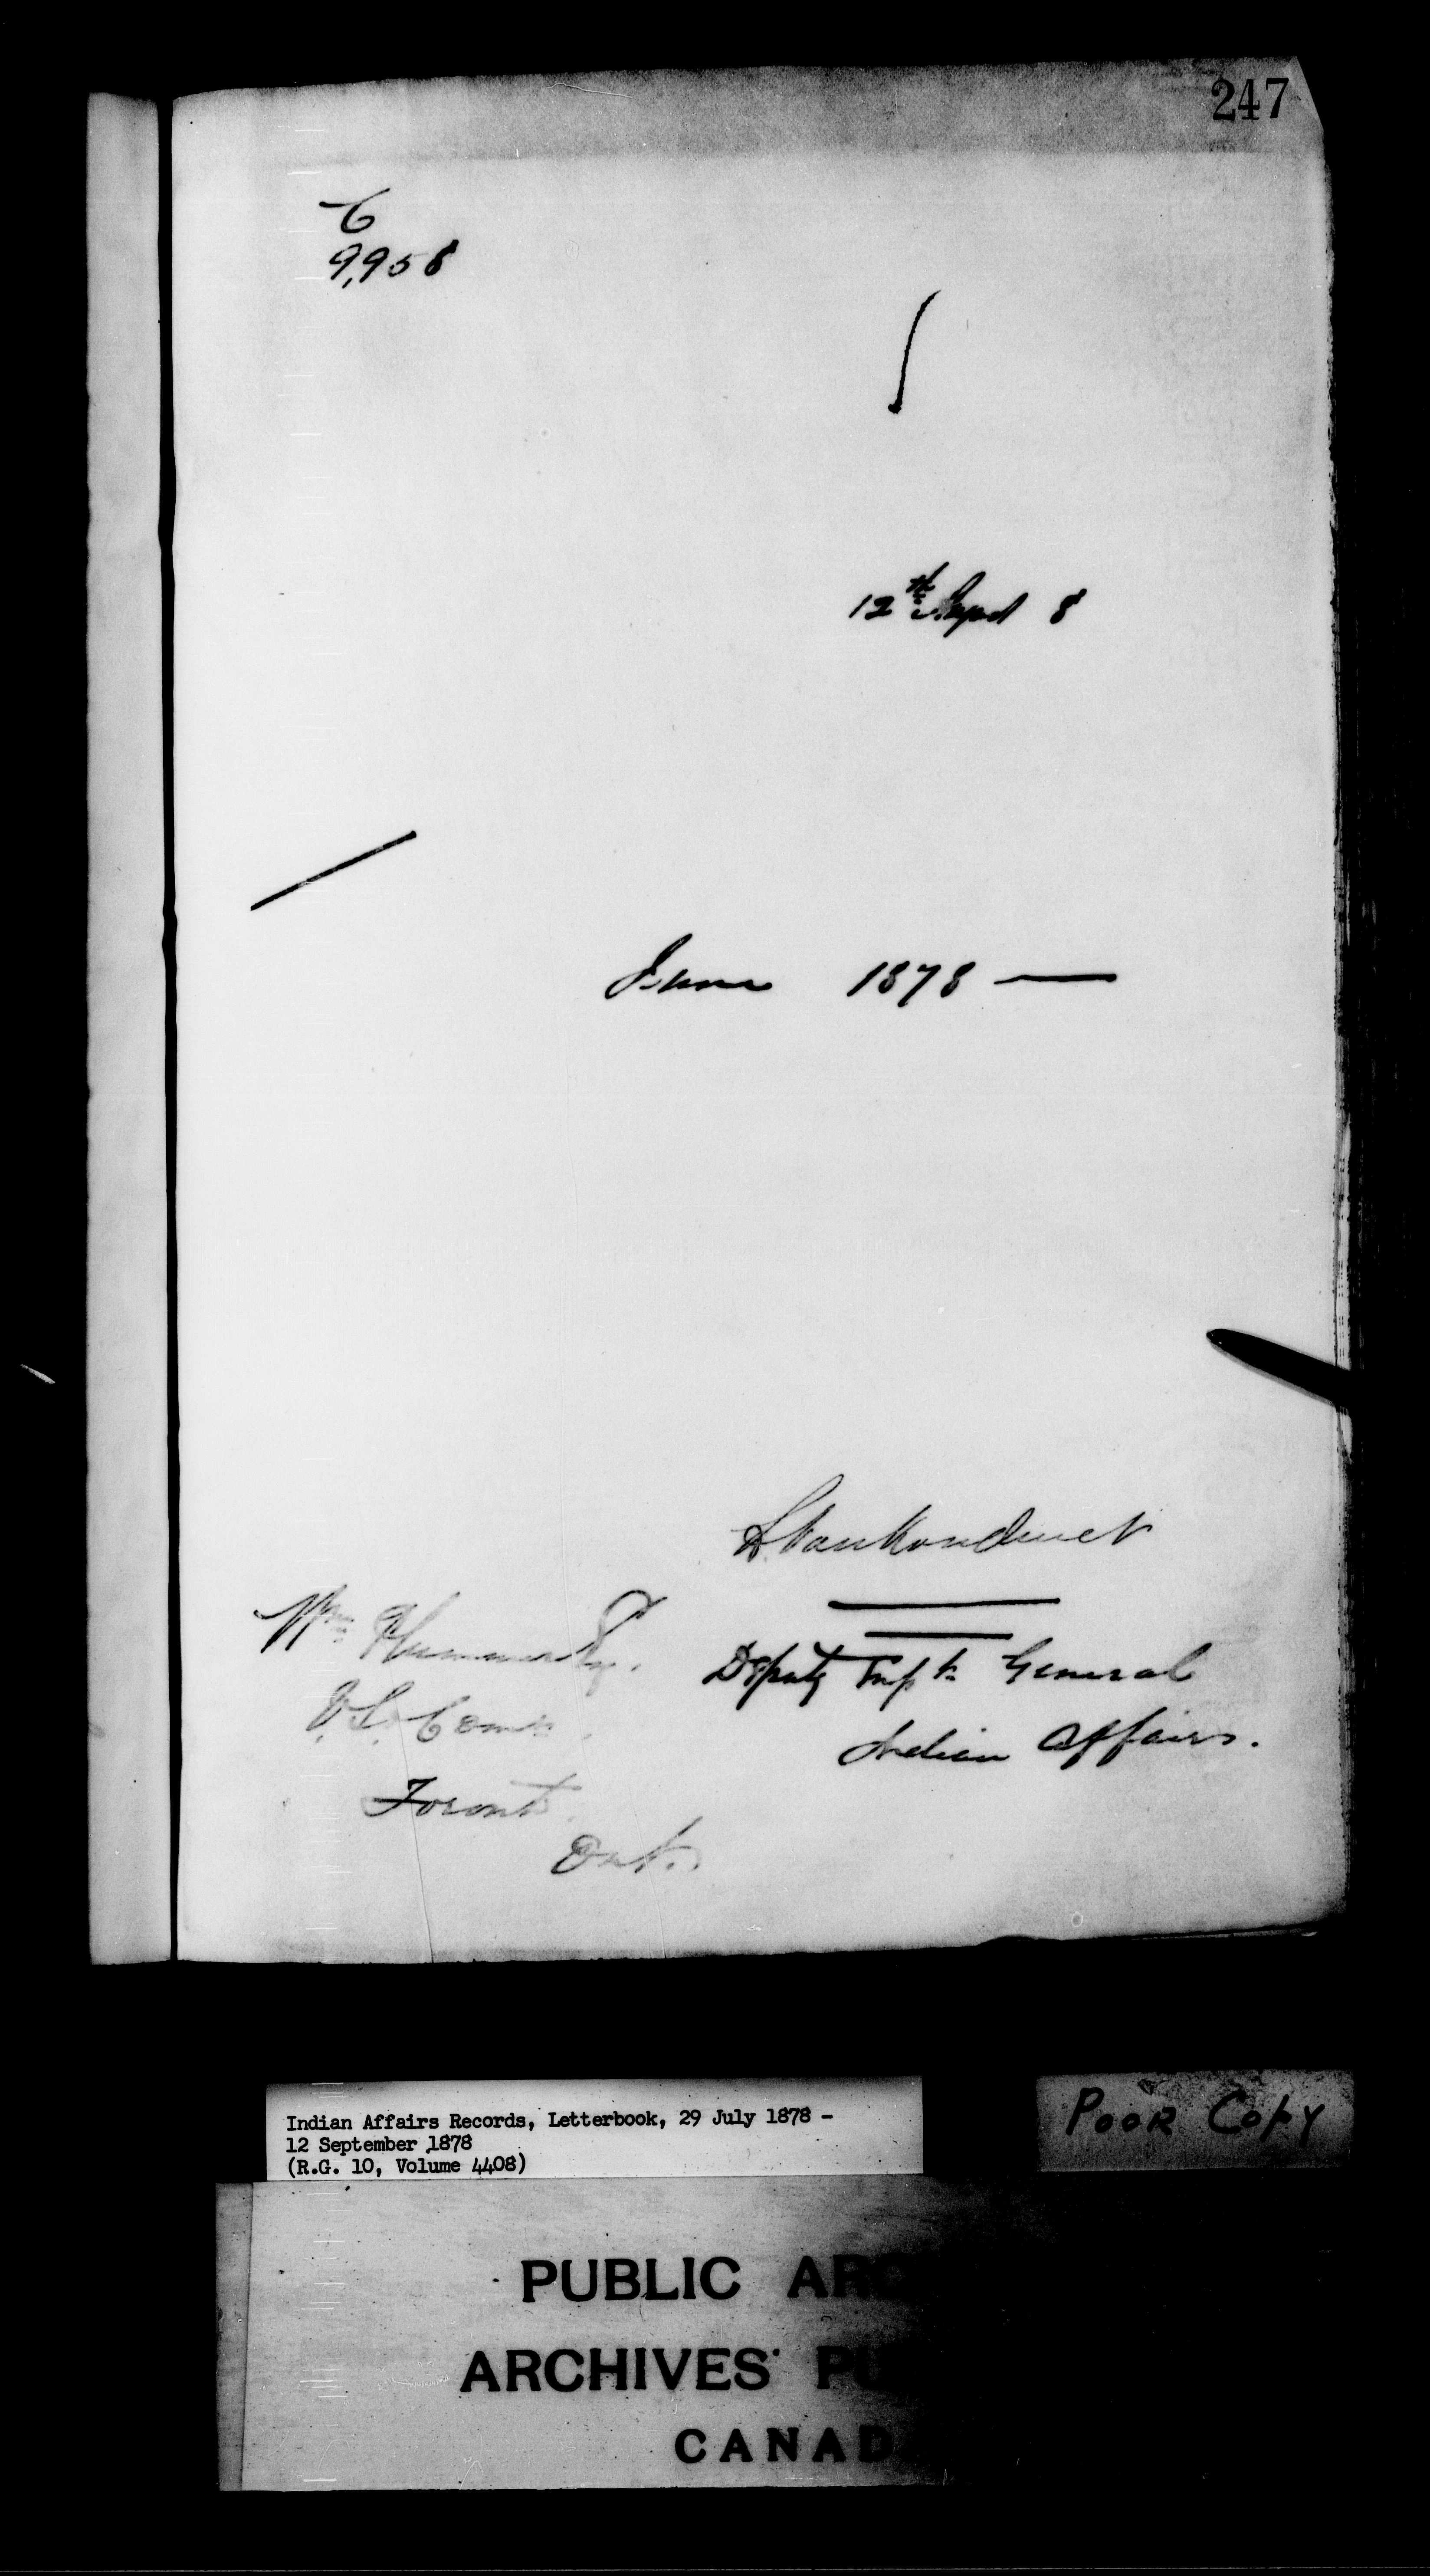 247
C
9,958
12th Sept 8
June 1878 —
L. Vankoughnet
Wm Plummer Esq.
Deputy Supt General
V.S. Comr
Indian Affairs.
Toronto
Ont.
Indian Affairs Records, Letterbook, 29 July 1878 -
12 September 1878
(R.G. 10, Volume 4408)
POOR COPY
PUBLIC ARC
ARCHIVES PU
CANAD